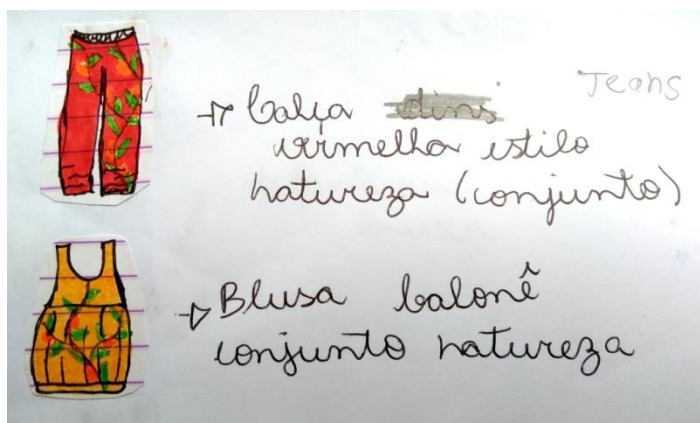 Calça dins Jeans
vermelha estilo
natureza (conjunto)
Blusa balonê
conjunto natureza